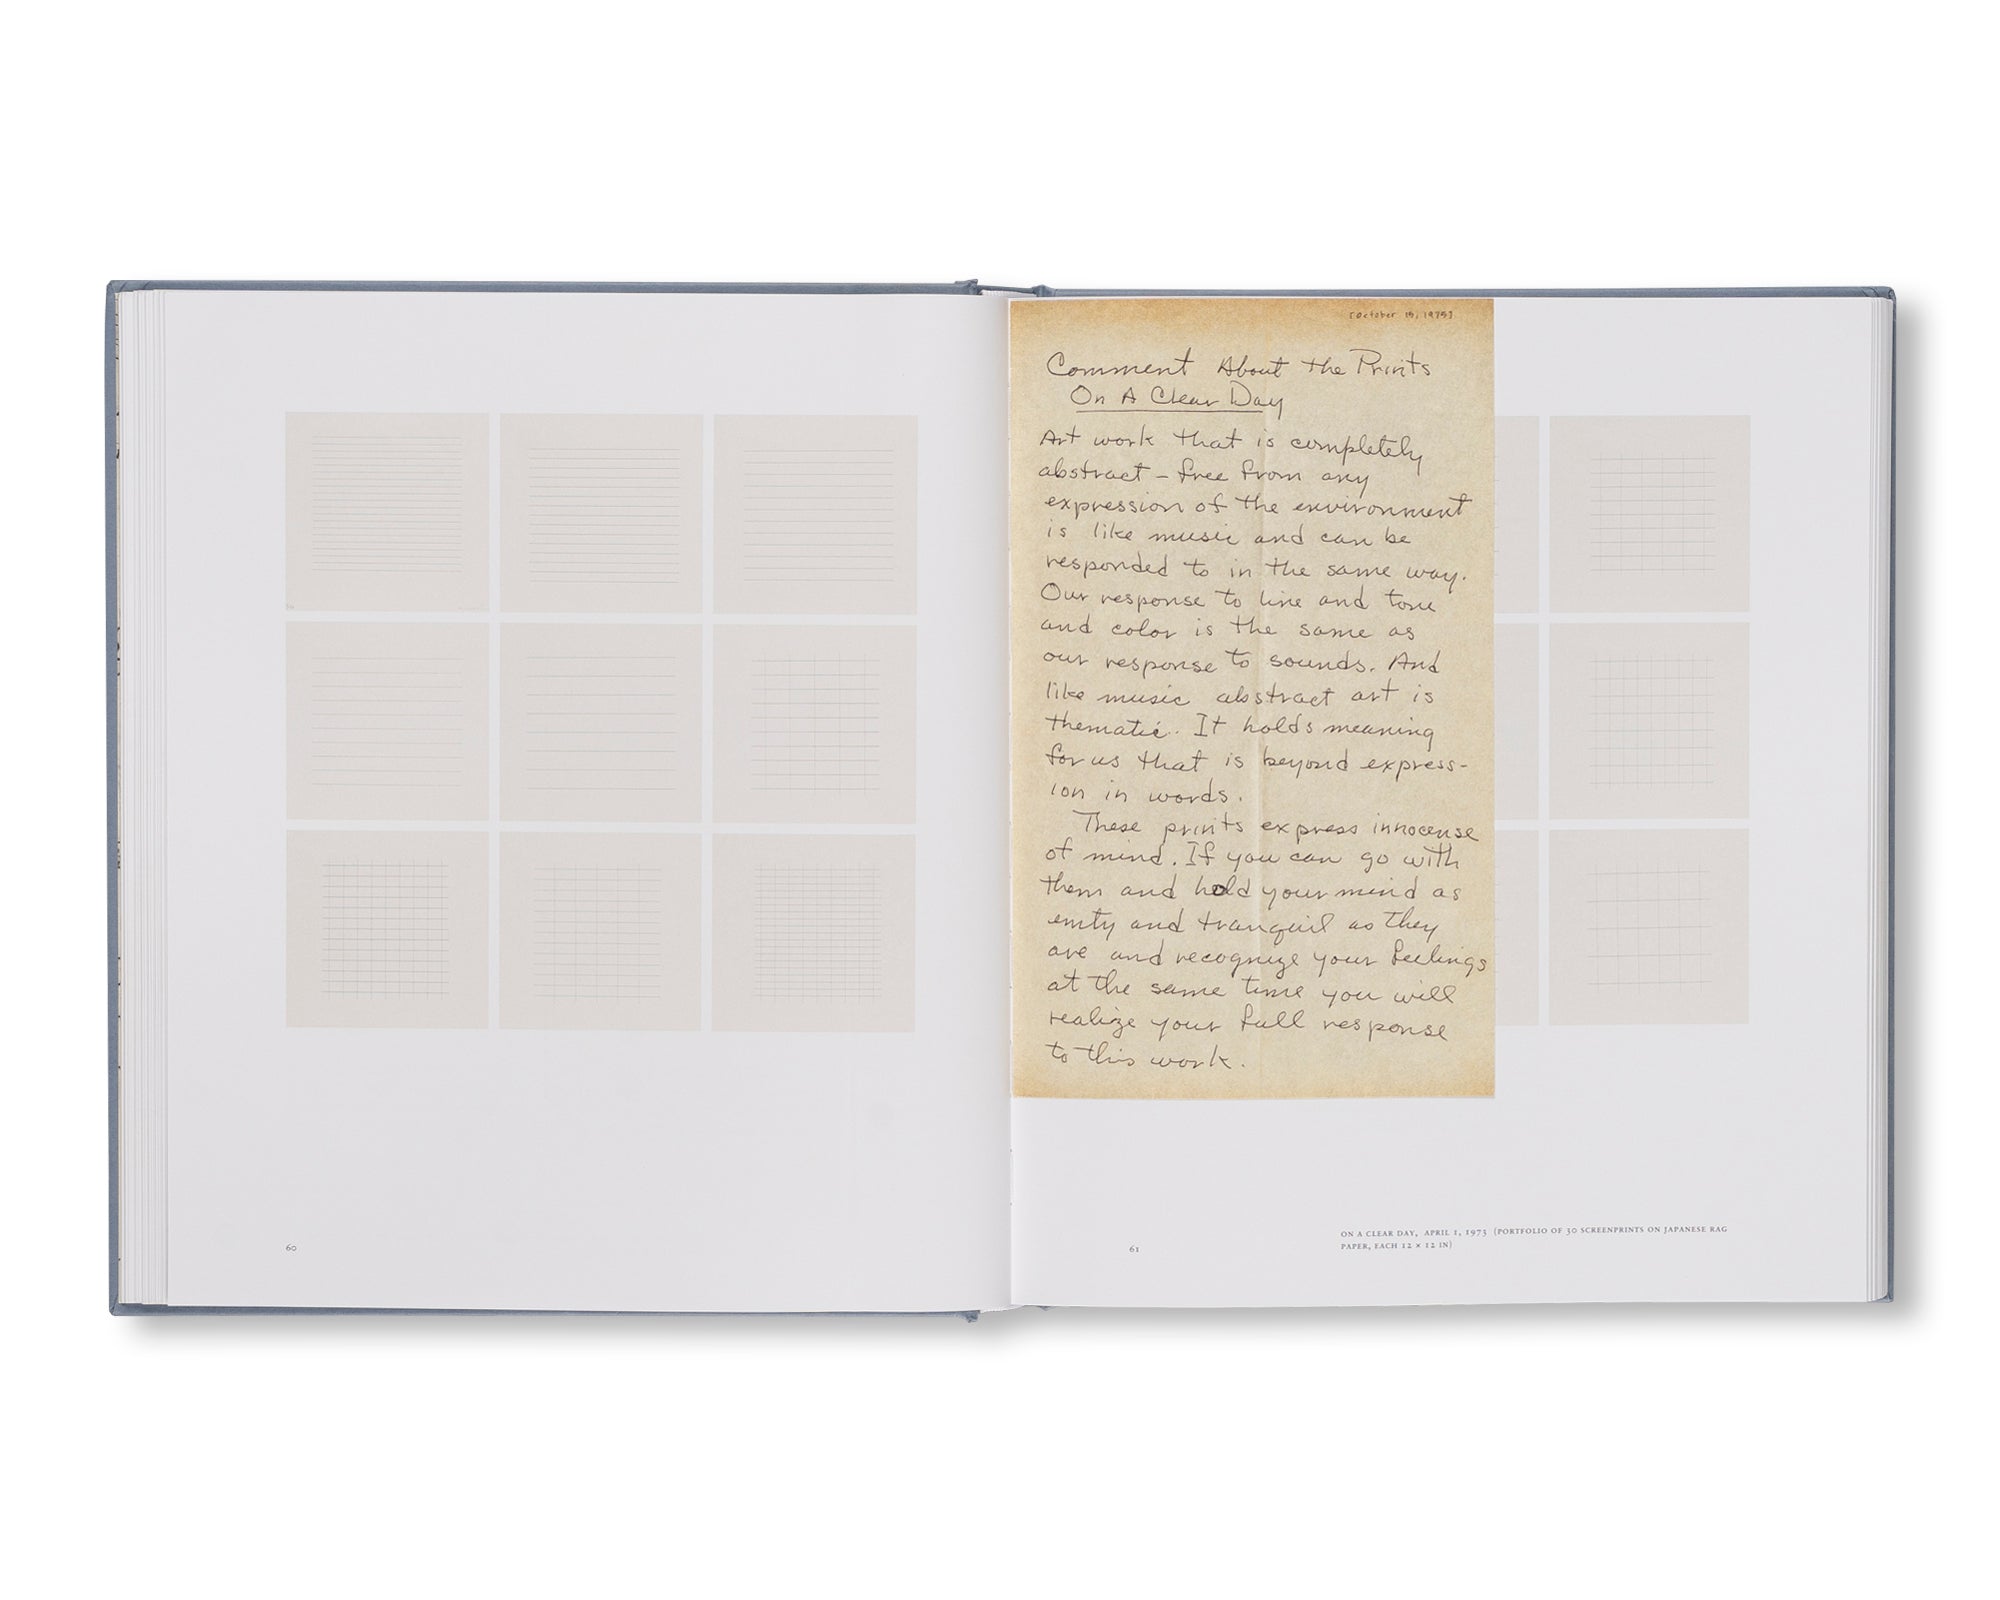 [October 15, 1975]
Comment About the Prints
On A Clear Day
Art work that is completely
abstract – free from any
expression of the environment
is like music and can be
responded to in the same way.
Our response to line and tone
and color is the same as
our response to sounds. And
like music abstract art is
thematic. It holds meaning
for us that is beyond express-
ion in words.
These prints express innocense
of mind. If you can go with
them and hold your mind as
emty and tranquil as they
are and recognize your feelings
at the same time you will
realize your full response
to this work.
60
61
ON A CLEAR DAY, APRIL 1, 1973 (PORTFOLIO OF 30 SCREENPRINTS ON JAPANESE RAG
PAPER, EACH 12 × 12 IN)